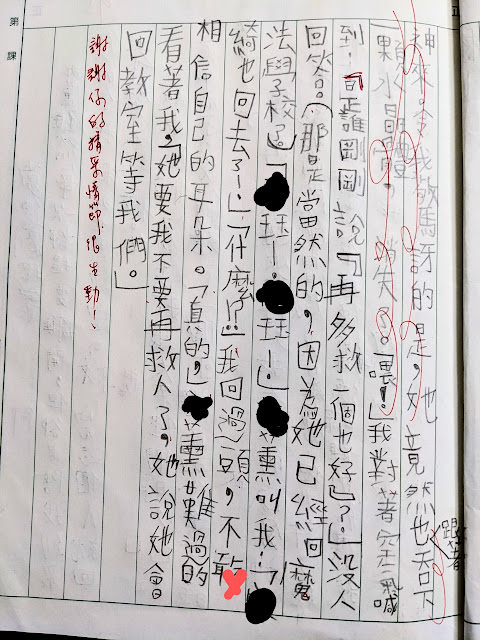 神來。令我驚訝的是，她竟然也吞下
跟著
一顆水晶，消失了。「喂！」我對著空喊
到！「是誰剛剛說「再多救一個也好」？」沒人
回答。（那是當然的，因為她已經回魔
法學校了。「珏！珏！」薰叫我！「
綺也回去了！」「什麼！？」我回過頭，不敢
相信自己的耳朵。「真的。」薰難過的
看著我，「她要我不要再救人了，她說她會
回教室等我們。」
謝謝你的精采情節很生動！
第 課